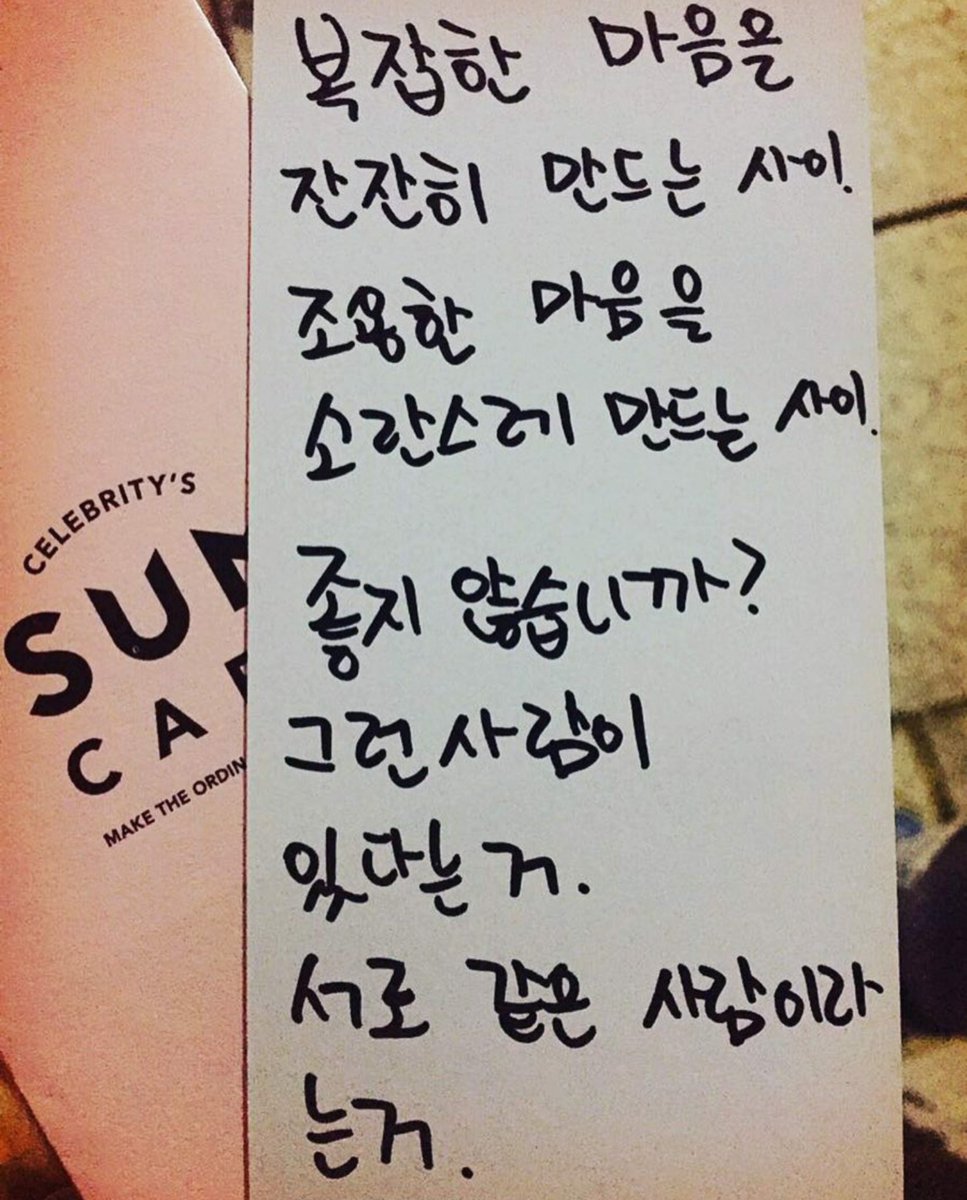 복잡한 마음을
잔잔히 만드는 사이.
조용한 마음을
소란스레 만드는 사이.
좋지 않습니까?
그런 사람이
있다는 거.
서로 같은 사람이라
는거.
CELEBRITY'S
SUN
CA
MAKE THE ORDIN